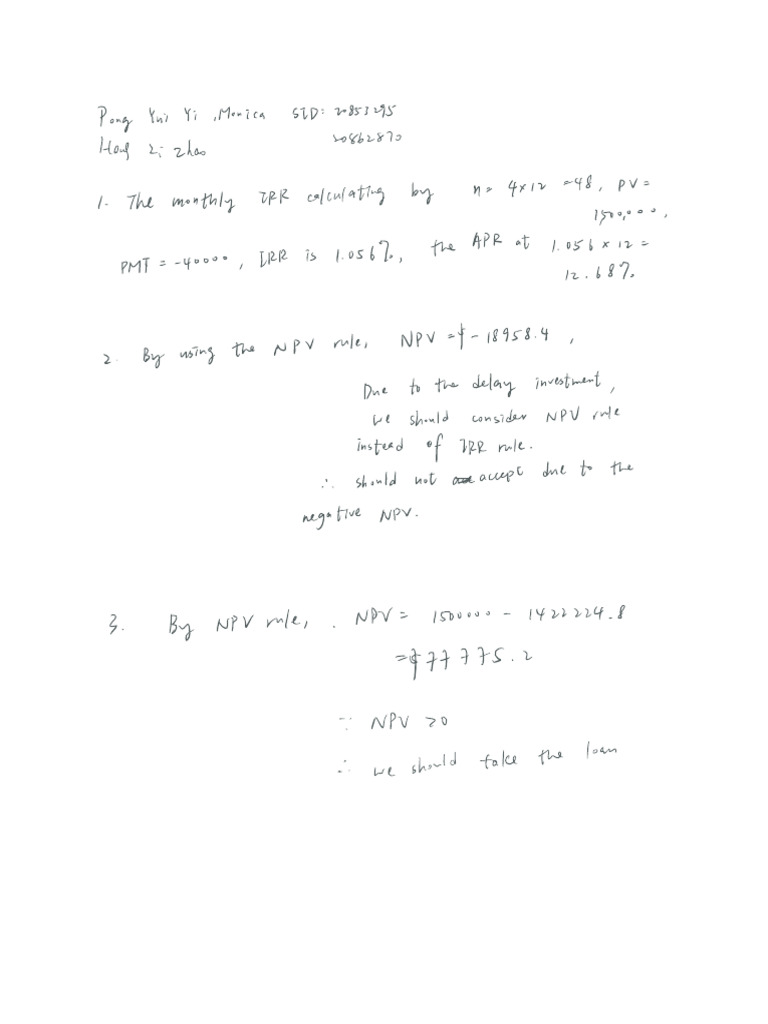 Pong Yui Yi , Monica SID: 20853295
Hong Zi Zhao 20862870
1. The monthly IRR calculating by n= 4x12 =48, PV=
1500,000,
PMT = -40000, IRR is 1.056%, the APR at 1.056 x 12 =
12.68%
2. By using the NPV rule, NPV =$-18958.4 ,
Due to the delay investment,
we should consider NPV rule
instead of IRR rule.
∴ should not accept due to the
negative NPV.
3. By NPV rule, . NPV= 1500000 - 1422224.8
=$77775.2
∵ NPV >0
∴ we should take the loan